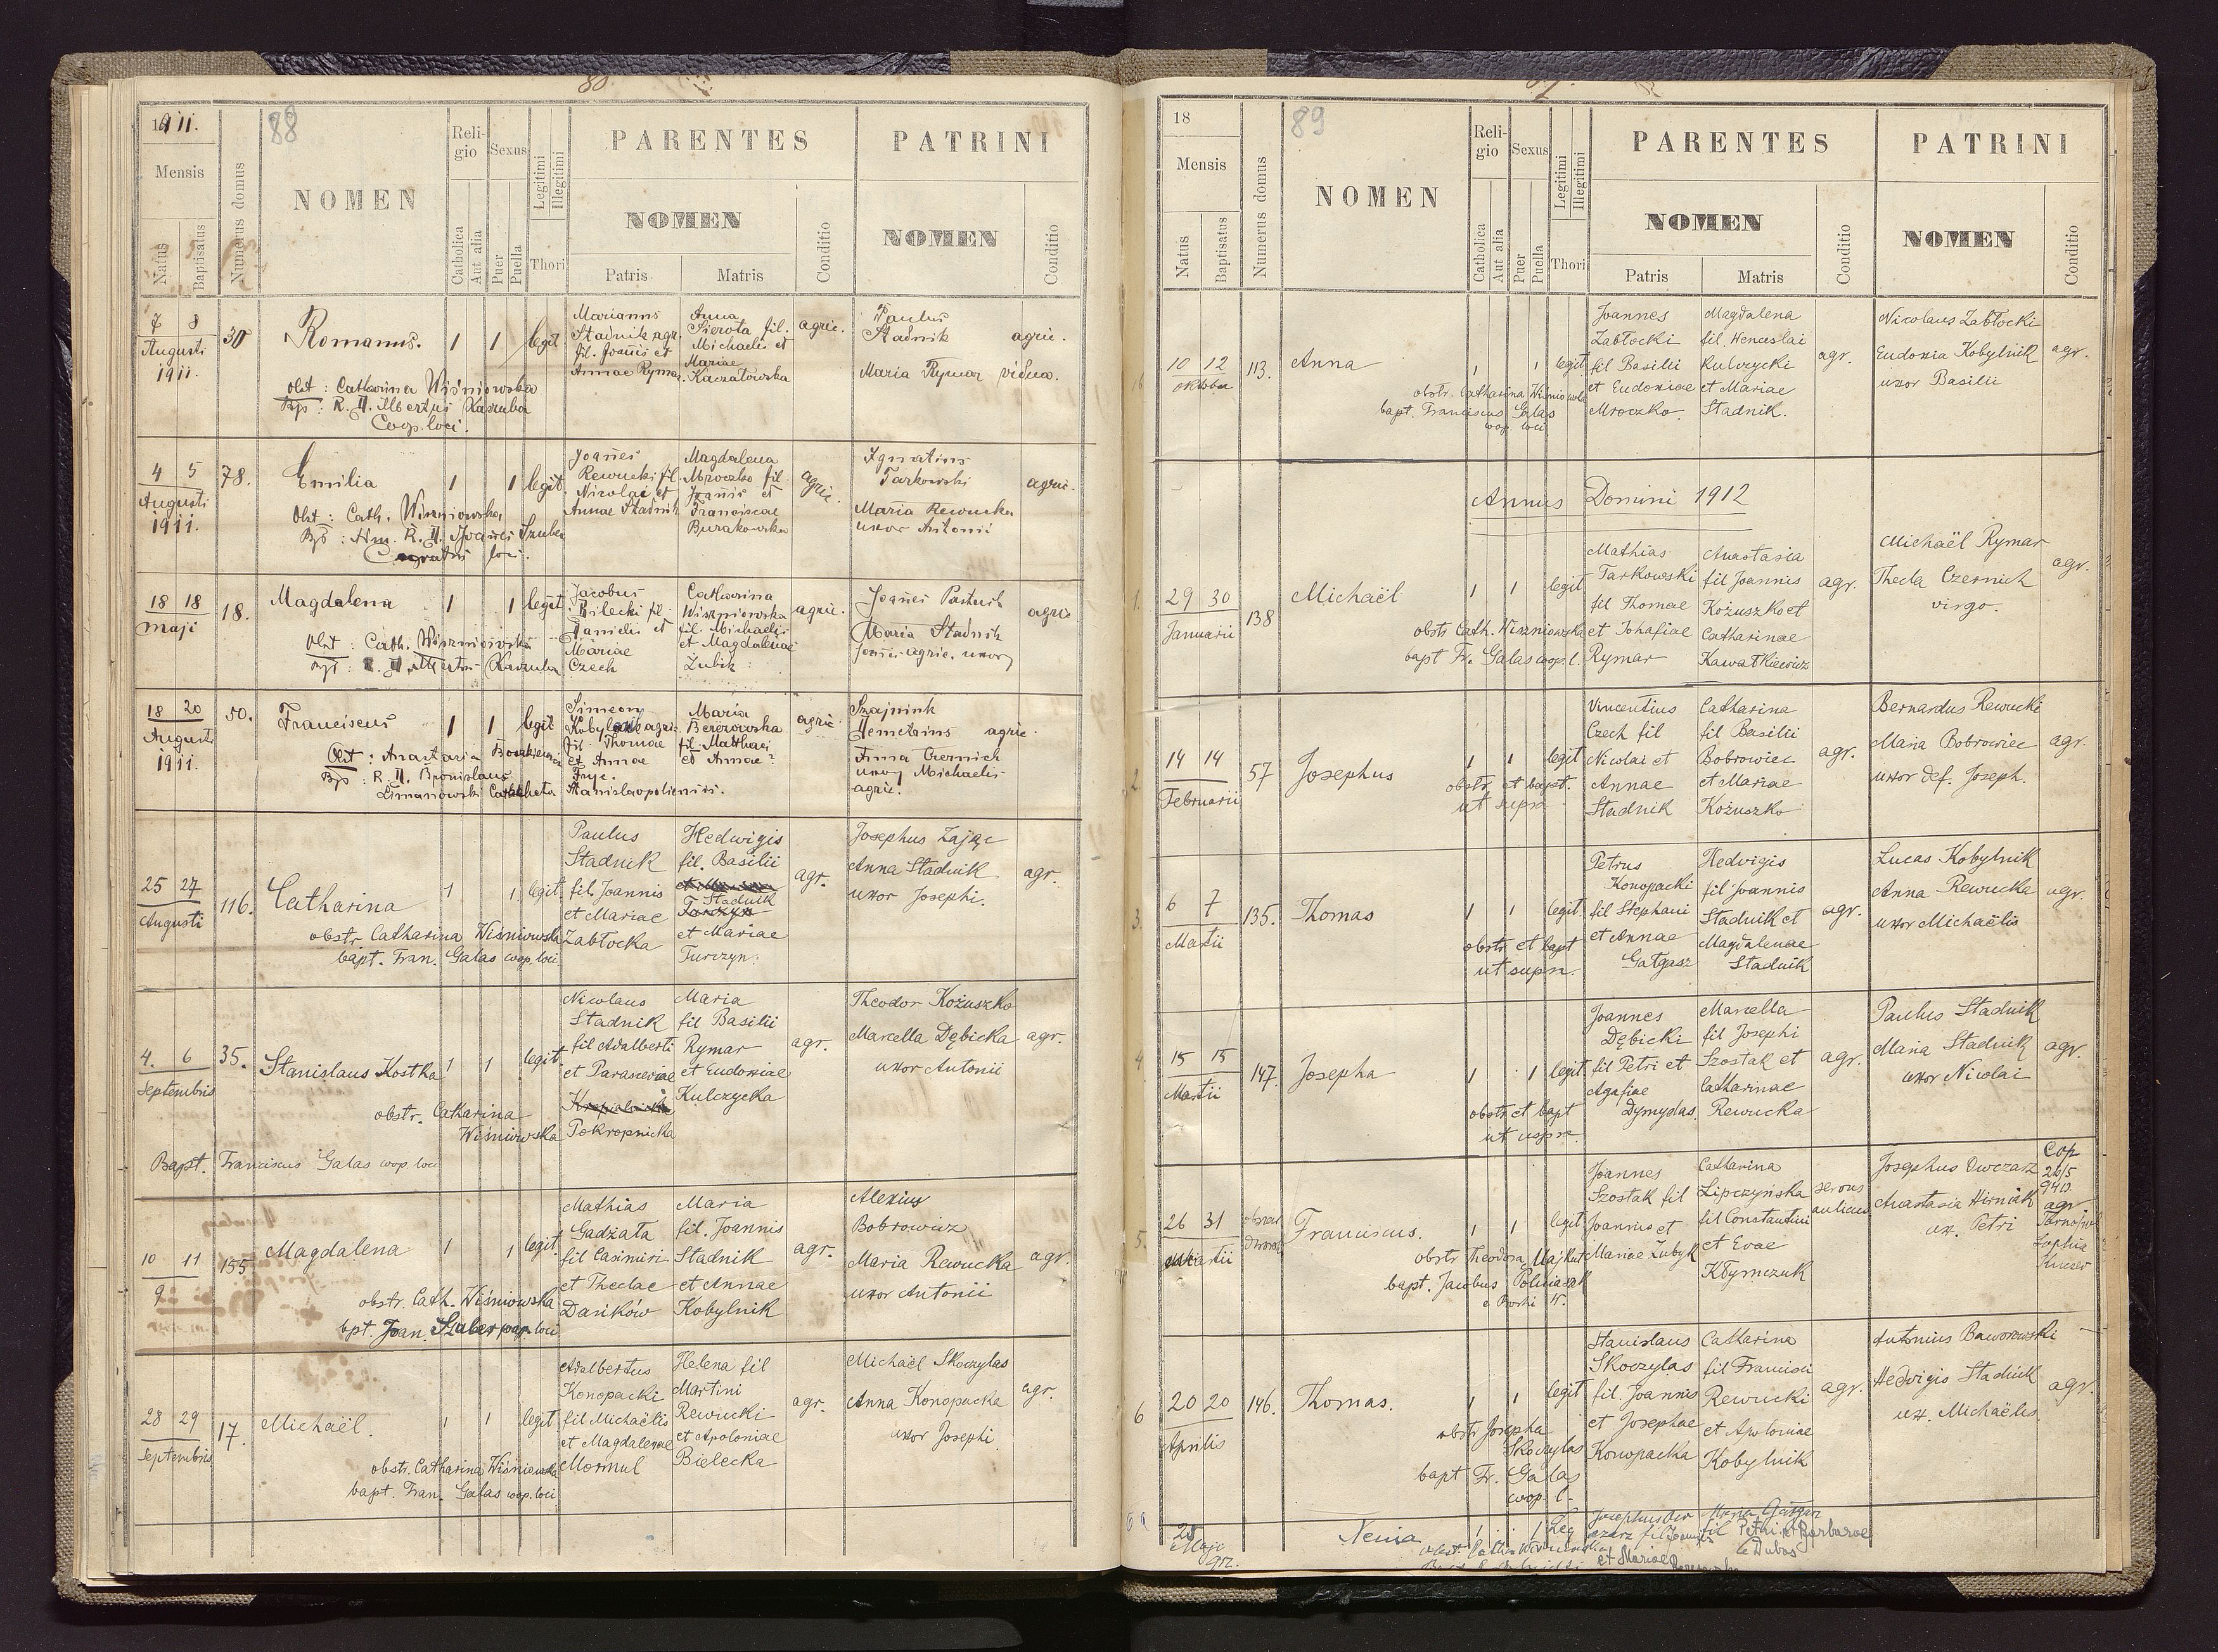 1911.
88
Mensis
Natus
Baptisatus
Numerus domus
NOMEN
Religio
Catholica
Aut alia
Sexus
Puer
Puella
Legitimi
Illegitimi
Thori
PARENTES
NOMEN
Patris
Matris
Conditio
PATRINI
NOMEN
Conditio
7 8
Augusti
1911.
30
Romanus.
1 1 legit
Obst : Catharina Wiśniowska
Bap : R. D. Albertus Kaszuba
Coop. loci.
Marianus
Stadnik agr.
fil. Joannis et
Annae Rymar
Anna
Sierota fil.
Michaelis et
Mariae
Kaczatowska
agric.
Paulus
Stadnik agric.
Maria Rymar vidua.
4 5
Augusti
1911.
78.
Emilia
1 1 legit
Obst : Cath. Wiszniowska
loci.
Joannes
Rewucki fil.
Nicolai et
Annae Stadnik
Magdalena
Mroczko fil.
Joannis et
Franciscae
Burakowska
agric.
Ignatius
Tarkowski
agric.
Maria Rewucka
uxor Antonii
18 18
maji
18.
Magdalena
1 1 legit
Obst : Cath. Wiszniowska
Kaszuba
Jacobus
Bilecki fil.
Danielis et
Mariae
Czech
Catharina
Wiszniowska
fil. Michaelis
et Magdalenae
Zubik
agric.
Joannes Pastuch
Maria Stadnik
Joannis agric. uxor
agric
18 20
Augusti
1911.
50.
Franciscus
1 1 legit
Obst : Anastasia
Bap : R. D. Bronislaus
Limanowski Catecheta Stanislaopoliensis.
Simeon
Kobylnik agric.
fil. Thomae
et Annae
Fryc.
Maria
Berezowska
fil. Mathaei
et Annae ?
agric
Szajnink
Demetrius agric.
Anna Czernich
uxor Michaelis
agric.
25 27
Augusti
116.
Catharina
1 1 legit.
obstr. Catharina Wiśniowska
bapt. Fran. Galas coop. loci
Paulus
Stadnik
fil. Joannis
et Mariae
Zabłocka
Hedwigis
fil. Basilii
Stadnik
et Mariae
Turczyn.
agr.
Josephus Zając
Anna Stadnik
uxor Josephi.
agr.
4. 6
Septembris
35.
Stanislaus Kostka
1 1 legit.
obstr. Catharina
Wiśniowska
Bapt. Franciscus Galas coop. loci
Nicolaus
Stadnik
fil Adalberti
et Parasceviae
Pokropnicka
Maria
fil Basilii
Rymar
et Eudoxiae
Kulczycka
agr.
Theodor Kożuszko
Marcella Dębicka
uxor Antonii
agr.
10 11
9
155
Magdalena
1 1 legit.
obstr. Cath. Wiśniowska
bpt. Joan. Szuber coop. loci
Mathias
Gadzata
fil Casimiri
et Theclae
Dańków
Maria
fil. Joannis
Stadnik
et Annae
Kobylnik
agr.
Alexius
Bobrowicz
Maria Rewucka
uxor Antonii
agr.
28 29
Septembris
17.
Michaël.
1 1 legit
obstr. Catharina Wiśniewska
bapt. Fran. Galas coop. loci
Adalbertus
Konopacki
fil Michaëlis
et Magdalenae
Mormul
Helena fil
Martini
Rewucki
et Apoloniae
Bielecka
agr.
Michaël Skoczylas
Anna Konopacka
uxor Josephi
agr.
18
89
Mensis
Natus
Baptisatus
Numerus domus
NOMEN
Religio
Catholica
Aut alia
Sexus
Puer
Puella
Legitimi
Illegitimi
Thori
PARENTES
NOMEN
Patris
Matris
Conditio
PATRINI
NOMEN
Conditio
10 12
Oktober
113.
Anna
1 1 legit
obstr. Catharina Wiśniowska
bapt. Franciscus Galas
coop. loci.
Joannes
Zabłocki
fil Basilii
et Eudoxiae
Mroczko.
Magdalena
fil. Venceslai
Kulczycki
et Mariae
Stadnik.
agr.
Nicolaus Zabłocki
Eudoxia Kobylnik
uxor Basilii
agr.
Annus Domini 1912
1.
29 30
Januarii
138
Michaël
1 1 legit
obstr Cath. Wiszniowska
bapt Fr. Galas coop. l.
Mathias
Tarkowski
fil Thomae
et Johafiae
Rymar
Anastasia
fil Joannis
Kożuszko et
Catharinae
Kawałkiewicz
agr.
Michaël Rymar
Thecla Czernich
virgo.
agr.
2
14 14
Februarii
57
Josephus
1 1 legit
obstr. et bapt.
ut supr.
Vincentius
Czech fil
Nicolai et
Annae
Stadnik
Catharina
fil Basilii
Bobrowiec
et Mariae
Kożuszko
agr.
Bernardus Rewucki
Maria Bobrowiec
uxor def. Joseph.
agr.
3.
6 7
Martii
135.
Thomas
1 1 legit.
obstr et bapt
ut supr.
Petrus
Konopacki
fil Stephani
et Annae
Gałgasz
Hedvigis
fil Joannis
Stadnik et
Magdalenae
Stadnik
agr.
Lucas Kobylnik
Anna Rewucka
uxor Michaëlis
agr.
4
15 15
Martii
147.
Josepha
1 1 legit
obstr et bapt
ut uspr.
Joannes
Dębicki
fil Petri et
Agafiae
Dymydas.
Marcella
fil Josephi
Szostak et
Catharinae
Rewucka
agr.
Paulus Stadnik
Maria Stadnik
uxor Nicolai
agr.
5.
26 31
Martii
Franciscus.
1 1 legit
obstr Theodora Majkut
bapt. Jacobus Polniaczek
Joannes
Szostak fil
Joannis et
Mariae Zubyk
Catharina
Lipczyńska
fil Constantini
et Evae
Kłymczuk
servus
aulicus
Josephus Owczarz
Anastasia Hirniak
ux. Petri
Cop
26/5
agr.
Sophia
6
20 20
Aprilis
146.
Thomas.
1 1 legit
obstr Josepha
Skoczylas
bapt Fr. Galas
coop. l.
Stanislaus
Skoczylas
fil. Joannis
et Josephae
Konopacka
Catharina
fil Francisci
Rewucki
et Antoniae
Kobylnik
agr.
Antonius Baworowski
Hedvigis Stadnik
ux. Michaëlis
agr.
6a
28
Maji
912.
Xenia
1 1 Leg
fil Joannis
et Mariae
Maria Gałgan
fil Petri et Barbarae
de Dubas